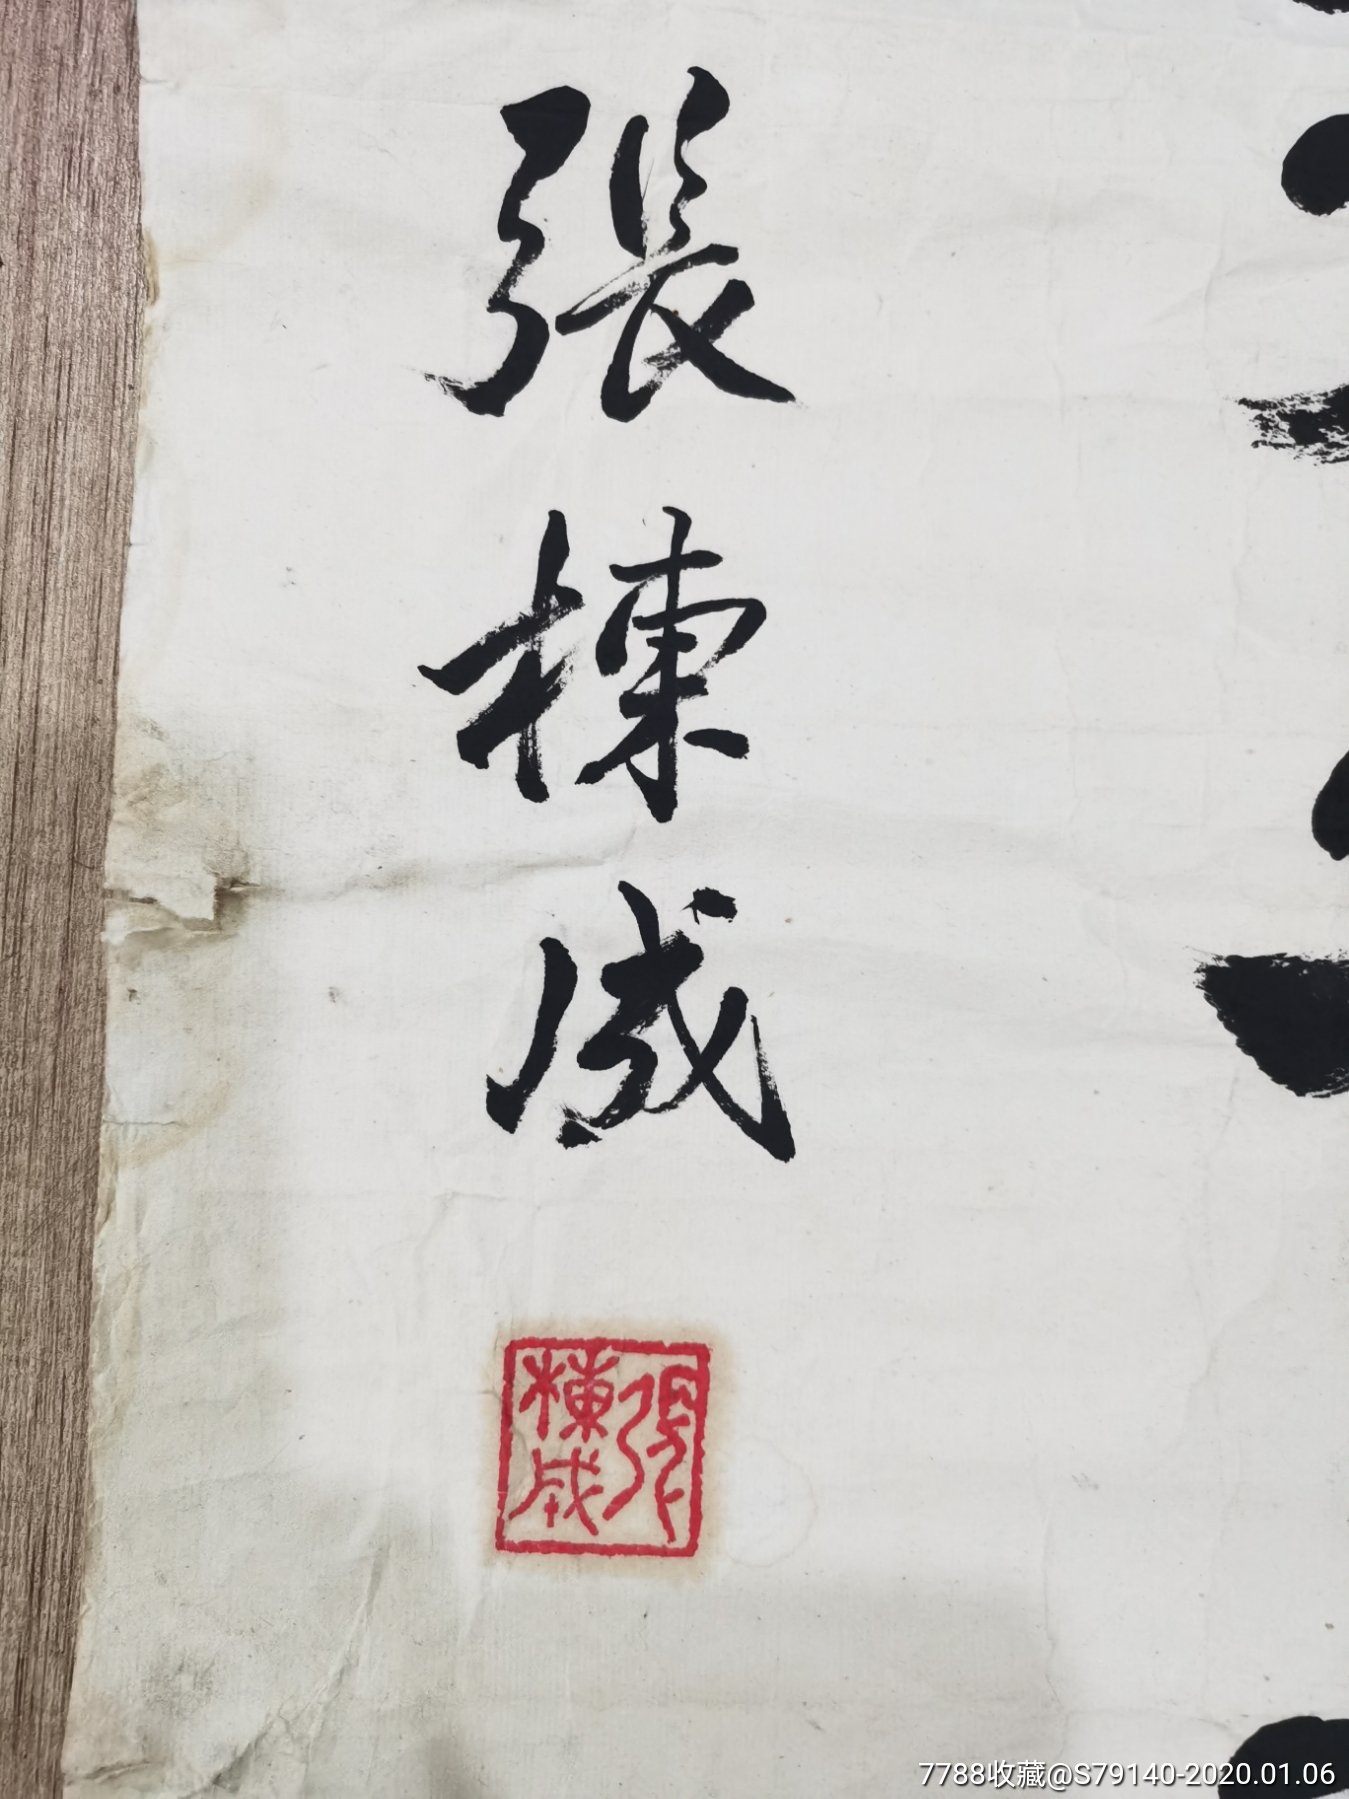 張棟成
張棟成
7788收藏@S79140-2020.01.06